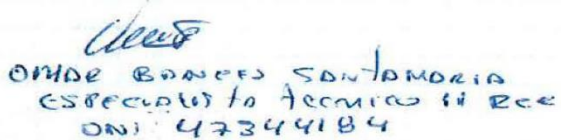 OMAR BANCES SANTAMARIA
ESPECIALISTA TECNICO II REE
DNI 47344184